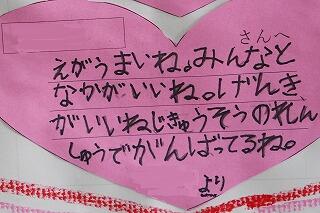 さんへ
えがうまいね。みんなと
なかがいいね。げんき
がいいねじきゅうそうのれん
しゅうでがんばってるね。
より